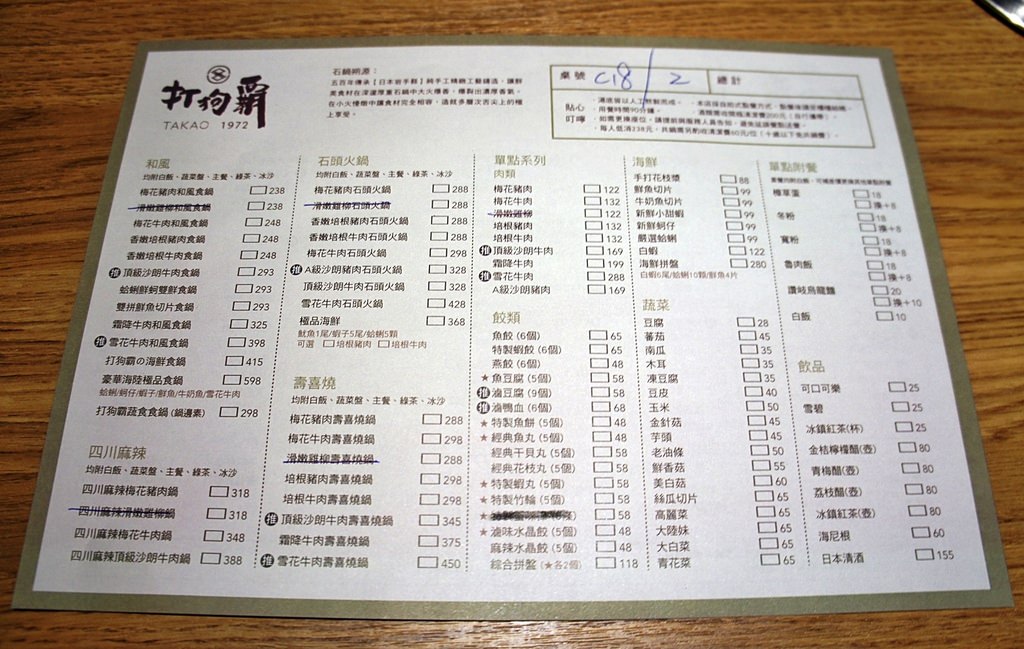 打狗霸
TAKAO 1972
石鍋朔源：
五百年傳承【日本岩手縣】純手工精緻工藝鑄造，讓鮮
美食材在深邃厚重石鍋中大火爆香，爆裂出濃厚香氣。
在小火慢燉中讓食材完全相容，造就多層次舌尖上的極
上享受。
桌號 C18/2 總計
貼心
叮嚀
用餐時間90分鐘。
和風
均附白飯、蔬菜盤、主餐、綠茶、冰沙
梅花豬肉和風食鍋 238
滑嫩雞柳和風食鍋 238
梅花牛肉和風食鍋 248
香嫩培根豬肉食鍋 248
香嫩培根牛肉食鍋 248
推 頂級沙朗牛肉食鍋 293
蛤蜊鮮蚵雙鮮食鍋 293
雙拼鮮魚切片食鍋 293
霜降牛肉和風食鍋 325
推 雪花牛肉和風食鍋 398
打狗霸の海鮮食鍋 415
豪華海陸極品食鍋 598
蛤蜊/蚵仔/蝦子/鮮魚/牛奶魚/雪花牛肉
打狗霸蔬食食鍋 (鍋邊素) 298
四川麻辣
均附白飯、蔬菜盤、主餐、綠茶、冰沙
四川麻辣梅花豬肉鍋 318
四川麻辣滑嫩雞柳鍋 318
四川麻辣梅花牛肉鍋 348
四川麻辣頂級沙朗牛肉鍋 388
石頭火鍋
均附白飯、蔬菜盤、主餐、綠茶、冰沙
梅花豬肉石頭火鍋 288
滑嫩雞柳石頭火鍋 288
香嫩培根豬肉石頭火鍋 288
香嫩培根牛肉石頭火鍋 288
梅花牛肉石頭火鍋 298
推 A級沙朗豬肉石頭火鍋 328
頂級沙朗牛肉石頭火鍋 328
雪花牛肉石頭火鍋 428
極品海鮮 368
魷魚1尾/蝦子5尾/蛤蜊5顆
可選 培根豬肉 培根牛肉
壽喜燒
均附白飯、蔬菜盤、主餐、綠茶、冰沙
梅花豬肉壽喜燒鍋 288
梅花牛肉壽喜燒鍋 298
滑嫩雞柳壽喜燒鍋 288
培根豬肉壽喜燒鍋 298
培根牛肉壽喜燒鍋 298
推 頂級沙朗牛肉壽喜燒鍋 345
霜降牛肉壽喜燒鍋 375
推 雪花牛肉壽喜燒鍋 450
單點系列
肉類
梅花豬肉 122
梅花牛肉 132
滑嫩雞柳 122
培根豬肉 132
培根牛肉 132
推 頂級沙朗牛肉 169
霜降牛肉 199
推 雪花牛肉 288
A級沙朗豬肉 169
餃類
魚餃 (6個) 65
特製蝦餃 (6個) 65
燕餃 (6個) 48
★魚豆腐 (5個) 58
推 滷豆腐 (9個) 58
推 滷鴨血 (6個) 68
★特製魚餅 (5個) 48
★經典魚丸 (5個) 48
經典干貝丸 (5個) 58
經典花枝丸 (5個) 58
★特製蝦丸 (5個) 58
★特製竹輪 (5個) 58
★滷味水晶餃 (5個) 48
麻辣水晶餃 (5個) 48
綜合拼盤 (★各2個) 118
海鮮
手打花枝漿 88
鮮魚切片 99
牛奶魚切片 99
新鮮小甜蝦 99
新鮮蚵仔 99
嚴選蛤蜊 99
白蝦 122
海鮮拼盤 280
白蝦6尾/蛤蜊10顆/鮮魚4片
蔬菜
豆腐 28
蕃茄 45
南瓜 35
木耳 35
凍豆腐 35
豆皮 40
玉米 50
金針菇 45
芋頭 45
老油條 50
鮮香菇 55
美白菇 60
絲瓜切片 65
高麗菜 65
大陸妹 65
大白菜 65
青花菜 65
單點附餐
套餐均附白飯，可補差價更換其他單點附餐
相草蛋 18
換+8
冬粉 18
換+8
寬粉 18
換+8
魯肉飯 18
換+8
讚岐烏龍麵 20
換+10
白飯 10
飲品
可口可樂 25
雪碧 25
冰鎮紅茶(杯) 25
金桔檸檬醋(壺) 80
青梅醋(壺) 80
荔枝醋(壺) 80
冰鎮紅茶(壺) 80
海尼根 60
日本清酒 155